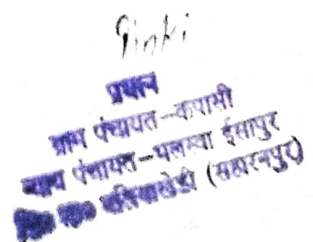 Pinki
प्रधान
ग्राम पंचायत-कपासी
न्याय पंचायत-घलम्वा ईसापुर
(सहारनपुर)